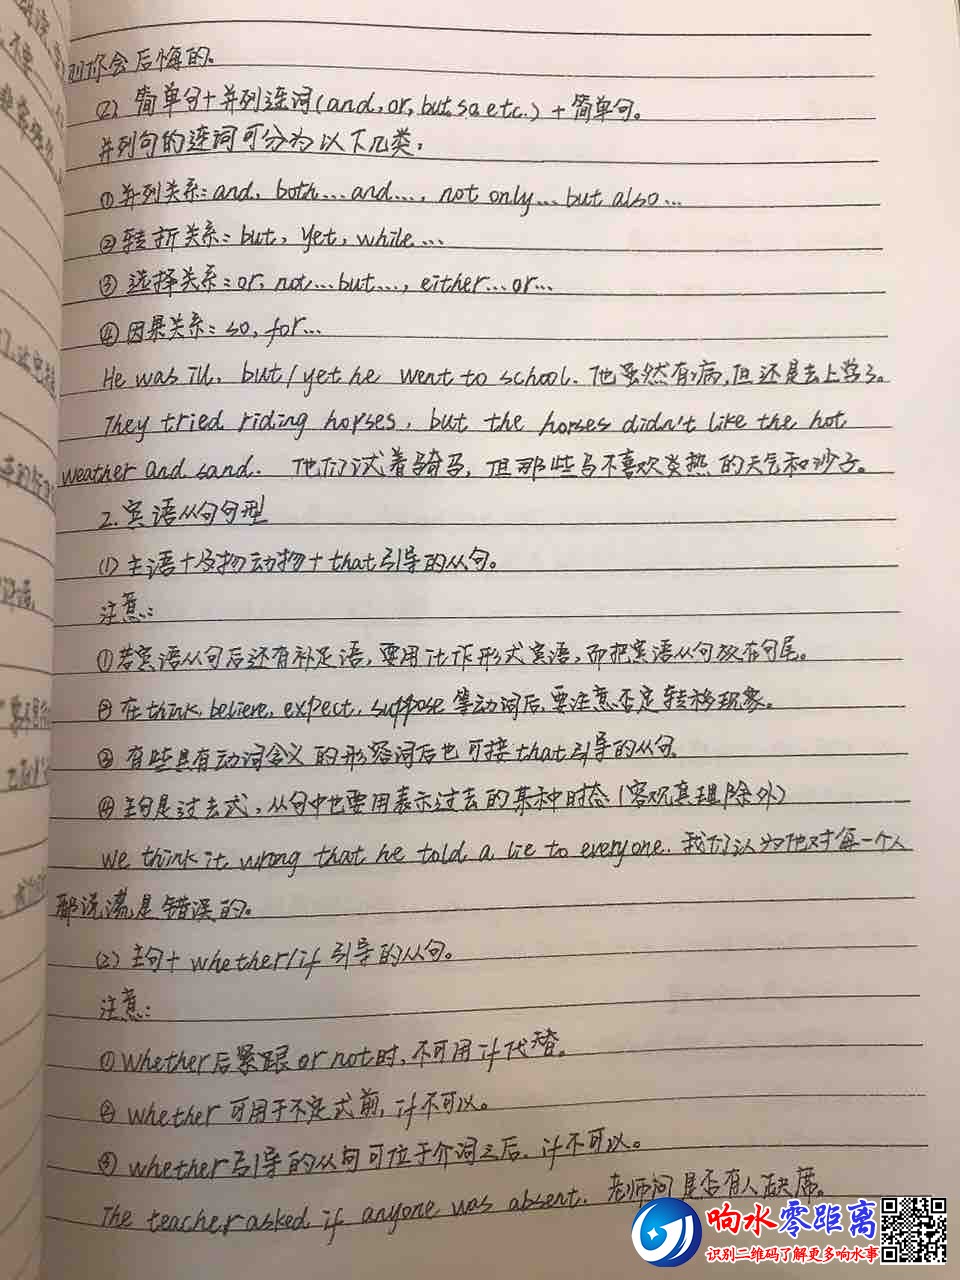 则你会后悔的。
(2) 简单句+并列连词(and, or, but, so etc.) + 简单句。
并列句的连词可分为以下几类:
①并列关系: and, both...and..., not only...but also...
②转折关系: but, yet, while...
③选择关系: or, not...but..., either...or...
④因果关系: so, for...
He was ill, but/yet he went to school. 他虽然有病,但还是去上学了。
They tried riding horses, but the horses didn't like the hot
weather and sand. 他们试着骑马,但那些马不喜欢炎热的天气和沙子。
2.宾语从句句型
(1) 主语+及物动物+that引导的从句。
注意:
①若宾语从句后还有补足语,要用it作形式宾语,而把宾语从句放在句尾。
②在think, believe, expect, suppose等动词后,要注意否定转移现象。
③有些具有动词含义的形容词后也可接that引导的从句。
④主句是过去式,从句中也要用表示过去的某种时态(客观真理除外)
We think it wrong that he told a lie to everyone. 我们认为他对每一个人
都说谎是错误的。
(2) 主句+ whether/if 引导的从句。
注意:
①whether后紧跟or not时,不可用if代替。
②whether可用于不定式前,if不可以。
③whether引导的从句可位于介词之后,if不可以。
The teacher asked if anyone was absent. 老师问是否有人缺席。
响水零距离
识别二维码了解更多响水事